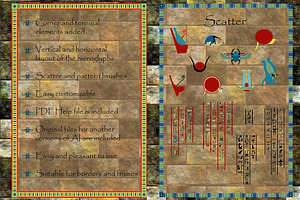 Corner and terminal
elements added
Vertical and horizontal
layout of the hieroglyphs
Scatter and pattern brushes
Easy customizable
PDF Help file is included
Original files for another
versions of AI are included
Easy and pleasant to use
Suitable for borders and frames
Scatter